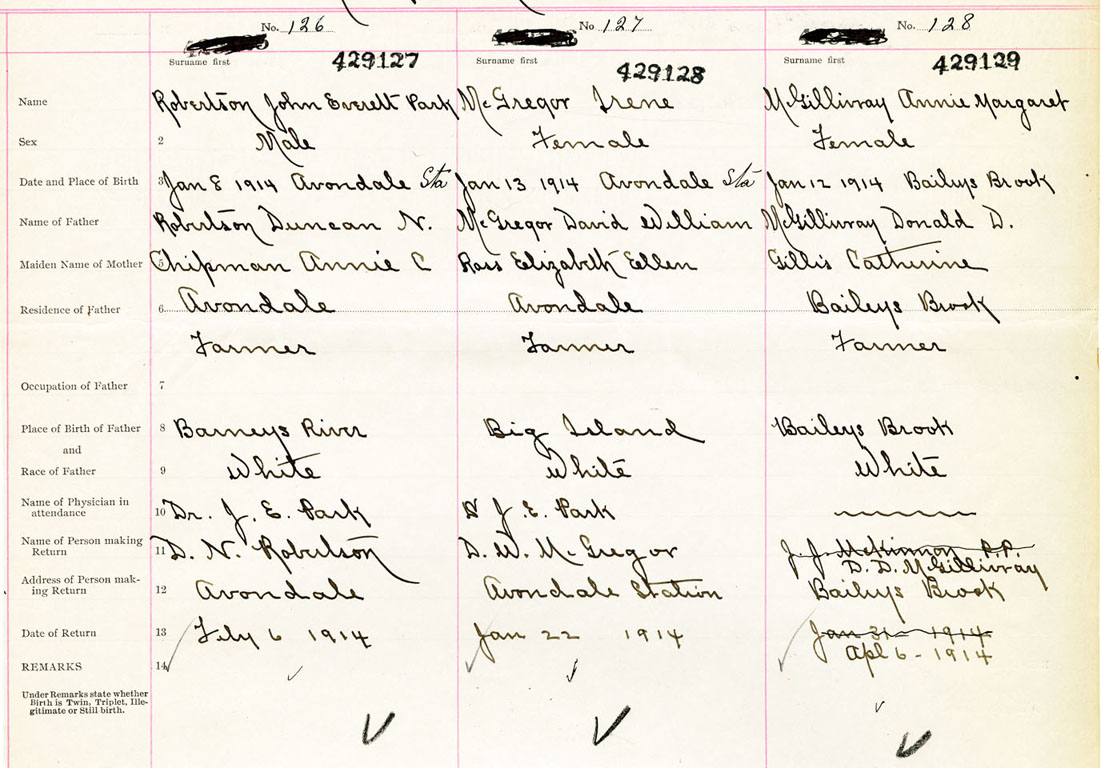 No. 126 No 127 No. 128
Surname first 429127 Surname first 429128 Surname first 429129
Name Robertson John Everett Park McGregor Irene McGillivray Annie Margaret
Sex 2 Male Female Female
Date and Place of Birth 3 Jan 8 1914 Avondale Sta Jan 13 1914 Avondale Sta Jan 12 1914 Baileys Brook
Name of Father Robertson Duncan N. McGregor David William McGillivray Donald D.
Maiden Name of Mother 5 Chipman Annie C Ross Elizabeth Ellen Gillis Catherine
Residence of Father 6 Avondale Avondale Baileys Brook
Farmer Farmer Farmer
Occupation of Father 7
Place of Birth of Father 8 Barneys River Big Island Baileys Brook
and
Race of Father 9 White White White
Name of Physician in
attendance 10 Dr. J. E. Park D J. E. Park
Name of Person making
Return 11 D. N. Robertson D. W. McGregor J. J. McKinnon P.P.
D. D. McGillivray
Address of Person mak-
ing Return 12 Avondale Avondale Station Baileys Brook
Date of Return 13 Feby 6 1914 Jan 22 1914 Jan 31 - 1914
Apl 6 - 1914
REMARKS 14
Under Remarks state whether
Birth is Twin, Triplet, Ille-
gitimate or Still birth.